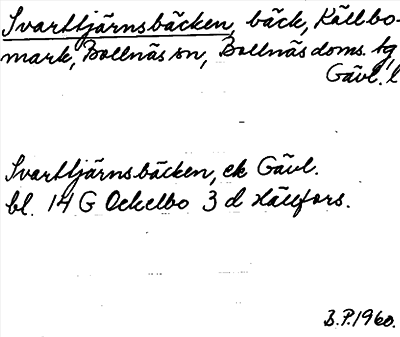 Svarttjärnsbäcken, bäck, Källbo-
mark, Bollnäs sn, Bollnäs doms. tg,
Gävl. l
Svarttjärnsbäcken, ek Gävl.
bl. 14 G Ockelbo 3 d Källfors.
B.P.1960.